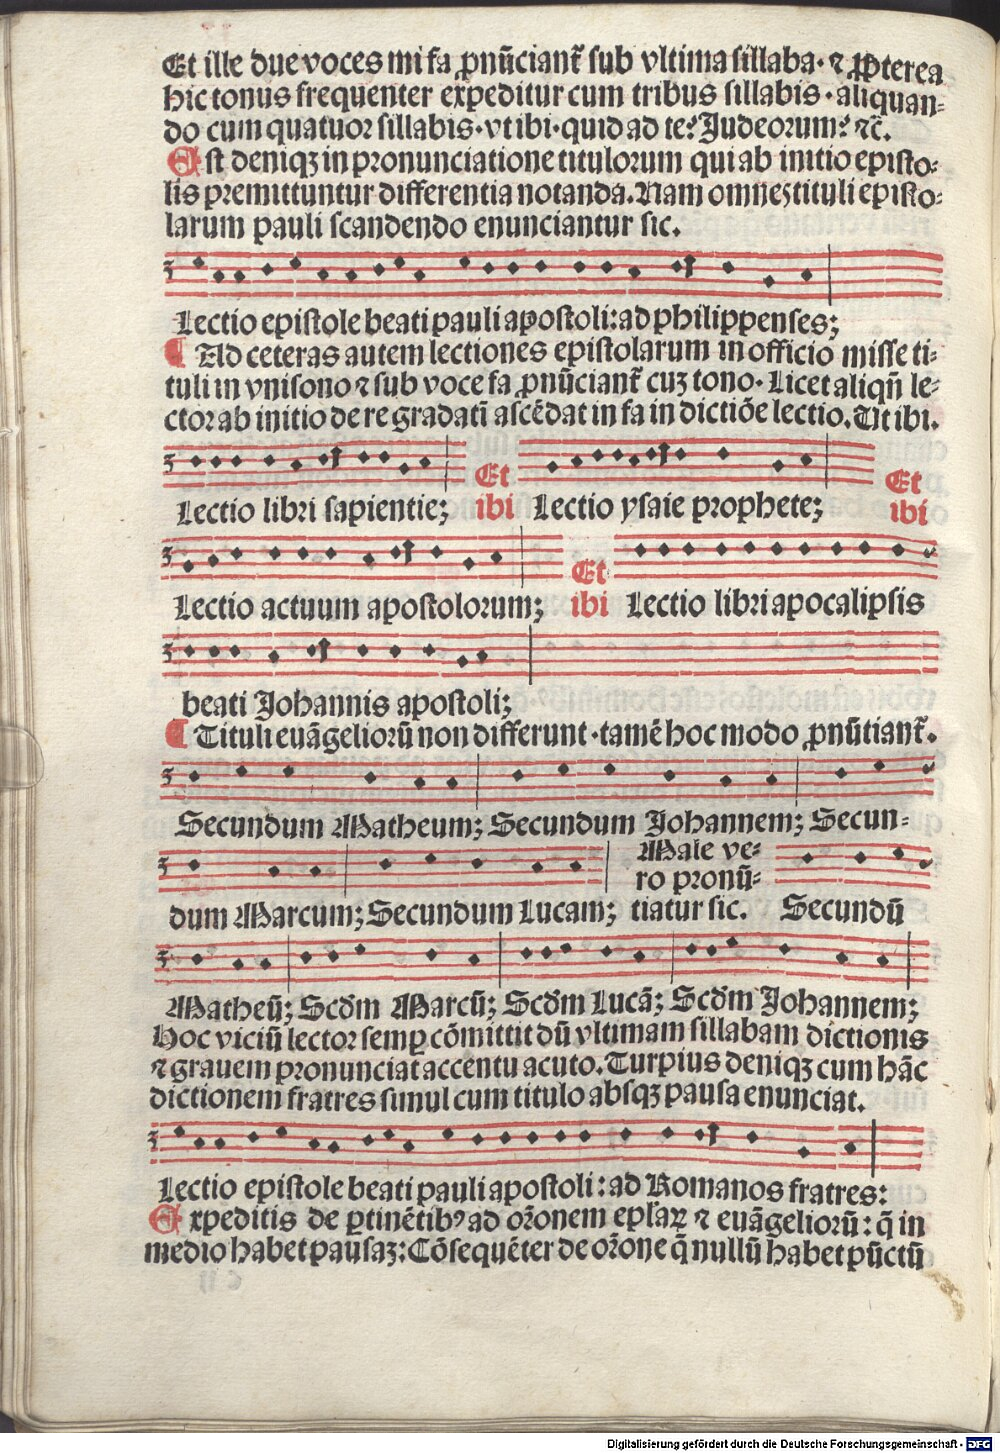 Et ille due voces mi fa ꝓnūciant᷑ sub vltima sillaba· ⁊ Propterea
hic tonus frequenter expeditur cum tribus sillabis·aliquan⸗
do cum quatuor sillabis·vt ibi·quid ad te? Judeorum? ⁊c̄.
Est deniqꝫ in pronunciatione titulorum qui ab initio episto⸗
lis premittuntur differentia notanda. Nam omneꝫ tituli episto⸗
larum pauli scandendo enunciantur sic.
Lectio epistole beati pauli apostoli: ad philippenses;
¶ Ad ceteras autem lectiones epistolarum in officio misse ti⸗
tuli in vnisono ⁊ sub voce fa ꝓnūciant᷑ cuꝫ tono. Licet aliqn̄ le⸗
ctor ab initio de re gradatī ascēdat in fa in dictiōe lectio. Ut ibi.
Lectio libri sapientie; Et ibi Lectio ysaie prophete; Et ibi
Lectio actuum apostolorum; Et ibi Lectio libri apocalipsis
beati Johannis apostoli;
¶ Tituli euāgeliorū non differunt·tamē hoc modo ꝓnūtiant᷑.
Secundum Matheum; Secundum Johannem; Secun⸗
Male ve⸗
ro pronū⸗
dum Marcum; Secundum Lucam; tiatur sic. Secundū
Matheū; Scd̄m Marcū; Scd̄m Lucā; Scd̄m Johannem;
Hoc viciū lector semꝑ cōmittit dū vltimam sillabam dictionis
⁊ grauem pronunciat accentu acuto. Turpius deniqꝫ cum hāc
dictionem fratres simul cum titulo absqꝫ pausa enunciat.
Lectio epistole beati pauli apostoli: ad Romanos fratres:
Expeditis de ꝑtinētibꝰ ad orōnem ep̄laꝝ ⁊ euāgeliorū: q̄ in
medio habet pausaꝫ: Cōsequēter de orōne q̄ nullū habet pūctū
Digitalisierung gefördert durch die Deutsche Forschungsgemeinschaft - DFG